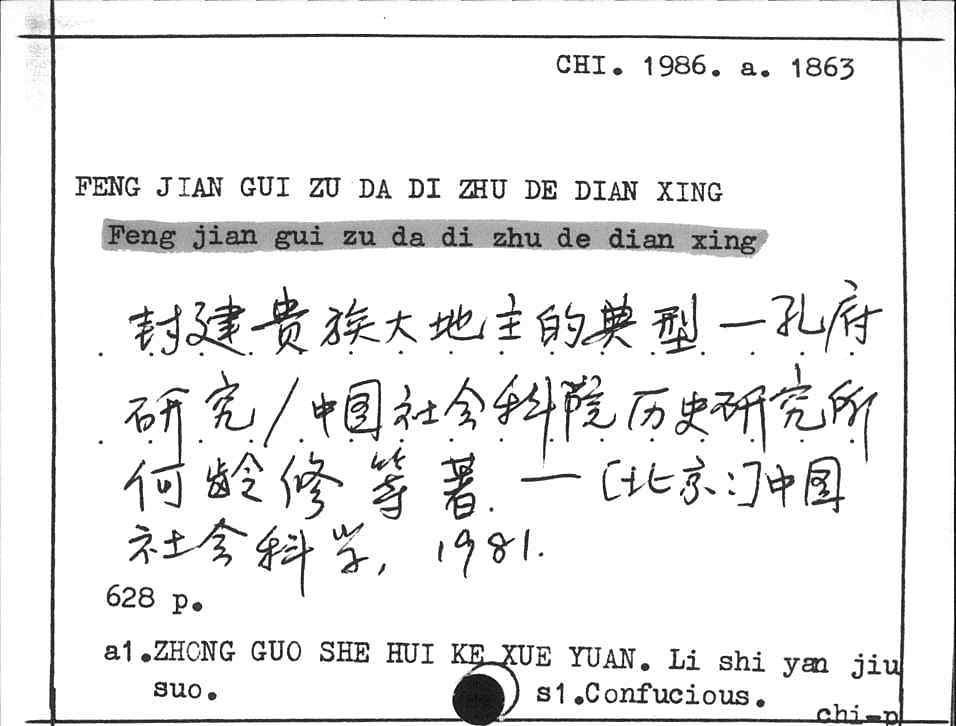 CHI. 1986. a. 1863
FENG JIAN GUI ZU DA DI ZHU DE DIAN XING
Feng jian gui zu da di zhu de dian xing
封建贵族大地主的典型 — 孔府
研究 / 中国社会科学院历史研究所
何龄修 等 著. — [北京:]中国
社会科学, 1981.
628 p.
a1.ZHONG GUO SHE HUI KE XUE YUAN. Li shi yan jiu
suo.
s1.Confucious.
chi-p